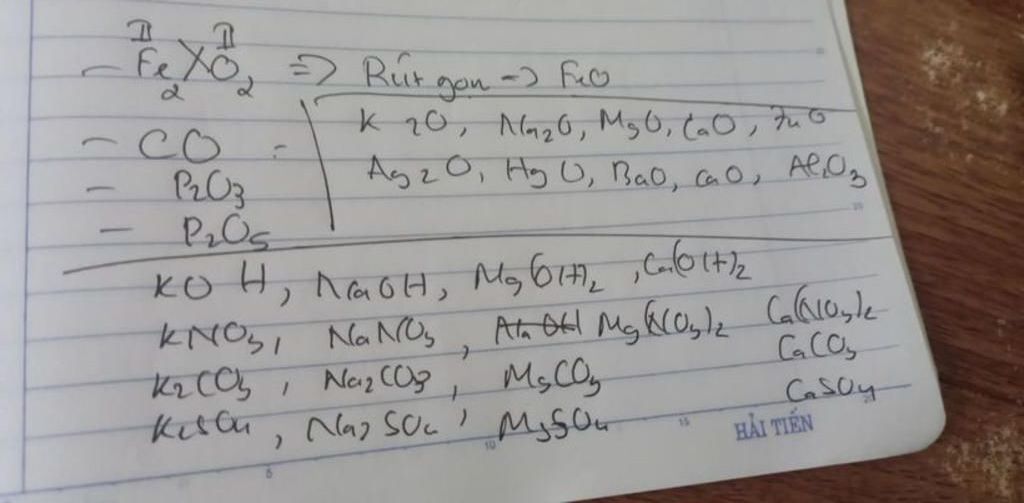 II II
- Fe2 O2 => Rút gọn -> FeO
- CO
- P2O3
- P2O5
K2O, Na2O, MgO, CaO, ZnO
Ag2O, HgO, BaO, CaO, Al2O3
KOH, NaOH, Mg(OH)2, Ca(OH)2
KNO3, NaNO3, Mg(NO3)2 Ca(NO3)2
K2CO3, Na2CO3, MgCO3 CaCO3
K2SO4, Na2SO4, MgSO4 CaSO4
HẢI TIẾN